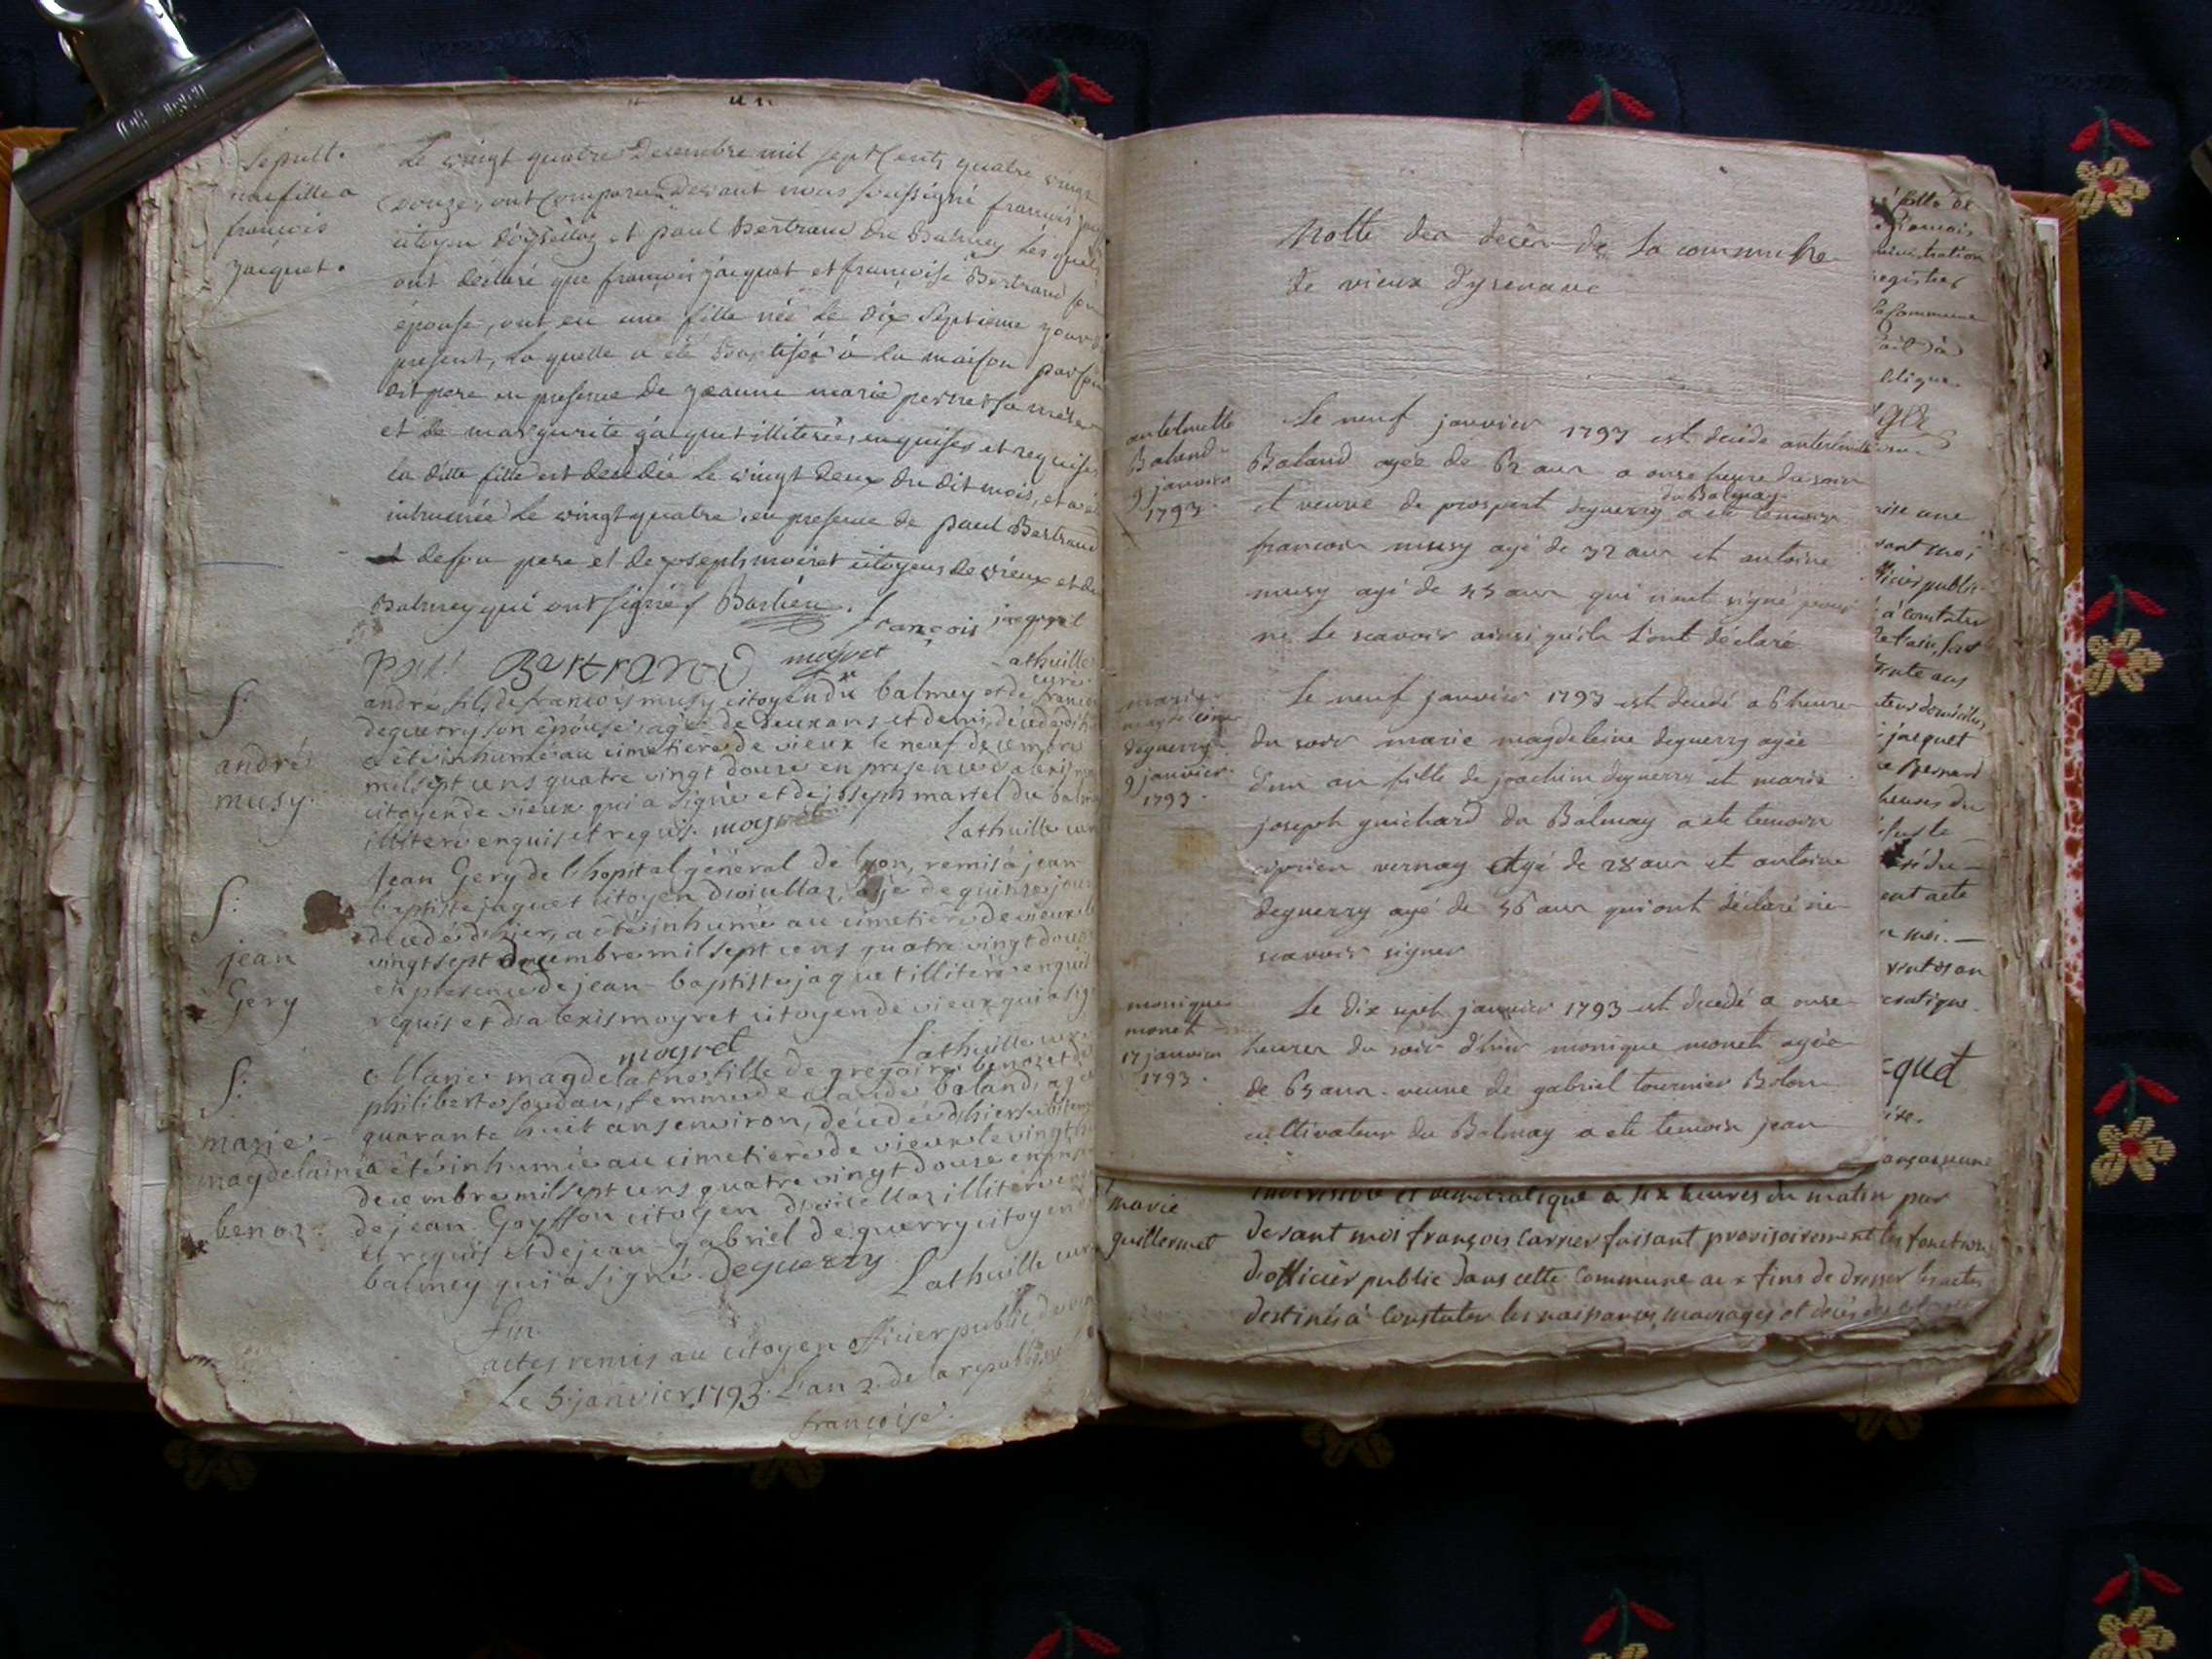 Sepult.
une fille a
françois
jacquet.
Le vingt quatre Decembre mil sept Cents quatre vingt
Douze, ont Comparu Devant nous soussigné françois
citoyen d'oysellaz et paul Bertrand du Balmey Lesquels
ont déclaré que françois jacquet et françoise Bertrand son
épouse, ont eu une fille née Le dix Septieme jour du
present, La quelle a été Baptisée a la maison par son
dit pere en presence de jeanne marie pernet sa mére
et de margurite jacquet illiterées enquises et requises
la ditte fille est decedée Le vingt deux du dit mois, et a été
inhumée Le vingt quatre, en presence de paul Bertrand
de son pere et de joseph moiret citoyens de vieux et du
Balmey qui ont signés Bastien. françois jacquet
paul Bertrand moyret Lathuille
curé
S:
andré
musy.
andré fils de francois musy citoyen du balmey et de
deguerry son épouse, agé de deux ans et demi, décédé
a été inhumé au cimetiere de vieux le neuf decembre
mil sept cens quatre vingt douse en presence d'alexis
citoyen de vieux qui a signé et de joseph martel du balmey
illiteré enquis et requis. moyret Lathuille curé
S:
jean
Gery
Jean Gery de l'hopital général de lyon, remis à jean
baptiste jaquet citoyen d'oisellaz, agé de quinse jours
decedé d'hier, a été inhumé au cimetiere de vieux le
vingt sept decembre mil sept cens quatre vingt douse
en presence de jean-baptiste jaquet illiteré enquis
requis et d'alexis moyret citoyen de vieux qui a signé
moyret Lathuille curé
S:
marie-
magdelaine
benoz.
Marie magdelaine fille de gregoire benoz et de
philiberte soudan, femme de claude baland, agée
quarante huit ans environ, decedée d'hier subitement
a été inhumée au cimetiere de vieux le vingt
decembre mil sept cens quatre vingt douse en presence
de jean Goyffon citoyen d'oisellaz illiteré enquis
et requis et de jean-gabriel deguerry citoyen
balmey qui a signé. deguerry Lathuille curé
fin.
actes remis au citoyen officier public de vieux
Le 5 janvier 1793. L'an 2. de la republique
françoise.
Notte des decès de la commune
de vieux d'ysenave
antelmette
Baland
9 janvier
1793.
Le neuf janvier 1793 est decede antelmette
Baland agée de 62 ans a onse heure du soir
et veuve de prospert deguerry du Balmay a ete temoin
francois musy agé de 32 ans et antoine
musy agé de 45 ans qui n'ont signé pour
ne le scavoir ainsi qu'ils l'ont déclaré
marie
magdeleine
deguerry
9 janvier
1793.
Le neuf janvier 1793 est decedé a 6 heure
du soir marie magdeleine deguerry agée
d'un an fille de joachim deguerry et marie
joseph guichard du Balmay a ete temoin
ciprien vernay agé de 28 ans et antoine
deguerry agé de 36 ans qui ont déclaré ne
scavoir signer
monique
monet
17 janvier
1793.
Le dix sept janvier 1793 est decedé a onse
heures du soir d'hier monique monet agée
de 65 ans veuve de gabriel tournier Bolon
cultivateur du Balmay a ete temoin jean
marie
guillermet
indivisible et democratique a six heures du matin par
devant moi françois Carrier faisant provisoirement les fonctions
d'officier public dans cette Commune aux fins de dresser les actes
destinés à Constater les naissances, mariages et décès des citoyens